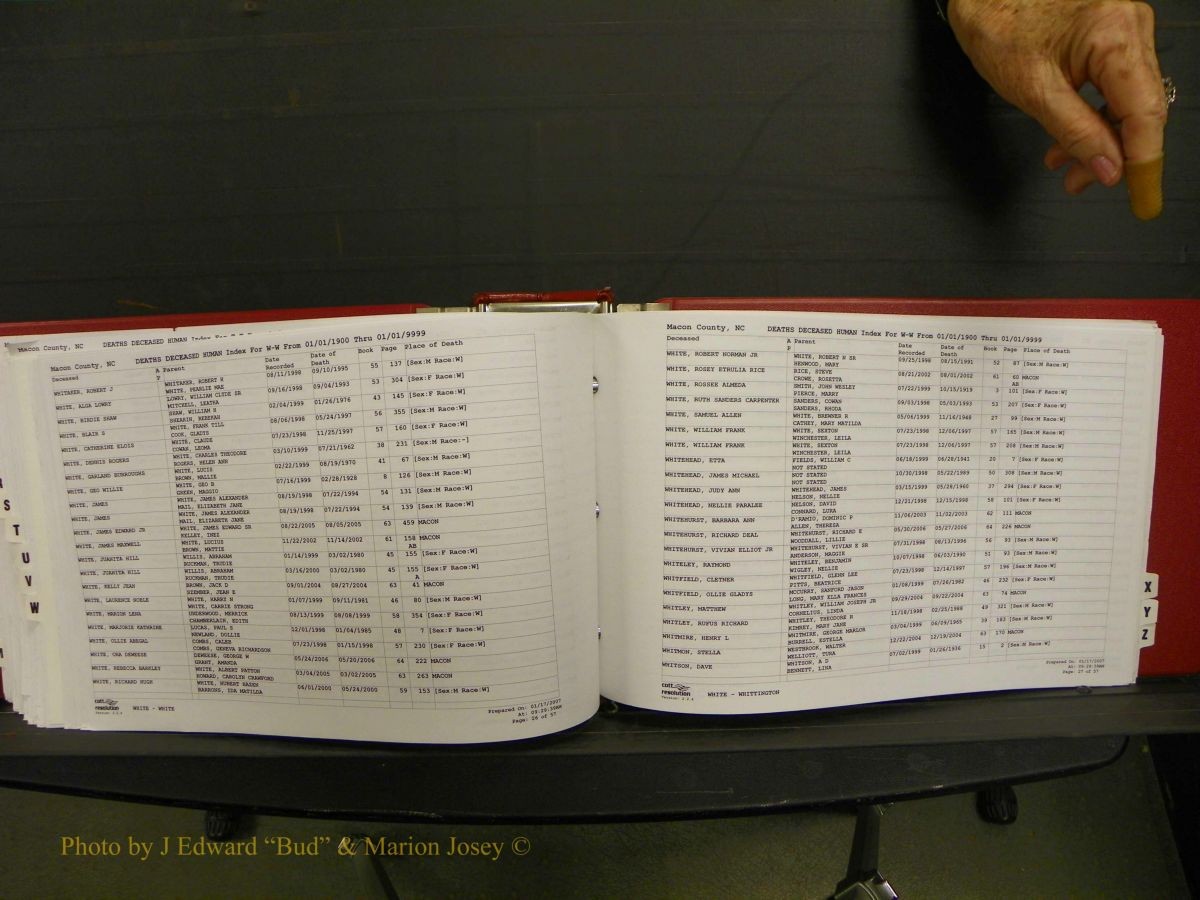 Macon County, NC DEATHS DECEASED HUMAN
Macon County, NC DEATHS DECEASED HUMAN Index For W-W From 01/01/1900 Thru 01/01/9999
Deceased A Parent Date Recorded Date of Death Book Page Place of Death
P
WHITAKER, ROBERT J WHITAKER, ROBERT H 08/11/1998 09/10/1995 55 137 [Sex:M Race:W]
WHITE, PEARLIE MAE
WHITE, ALDA LOWRY LOWRY, WILLIAM CLYDE SR 09/16/1998 09/04/1993 53 304 [Sex:F Race:W]
MITCHELL, LEATHA
WHITE, BIRDIE SHAW SHAW, WILLIAM H 02/04/1999 01/26/1976 43 145 [Sex:F Race:W]
SHEARIN, REBEKAH
WHITE, BLAIR S WHITE, FRANK TILL 08/06/1998 05/24/1997 56 355 [Sex:M Race:W]
COOK, GLADYS
WHITE, CATHERINE ELOIS WHITE, CLAUDE 07/23/1998 11/25/1997 57 160 [Sex:F Race:W]
COWAN, LEOMA
WHITE, DENNIS ROGERS WHITE, CHARLES THEODORE 03/10/1999 07/21/1962 38 231 [Sex:M Race:-]
ROGERS, HELEN ANN
WHITE, GARLAND BURROUGHS WHITE, LUCIS 02/22/1999 08/19/1970 41 67 [Sex:M Race:W]
BROWN, MALLIE
WHITE, GEO WILLIE WHITE, GEO B 07/16/1999 02/28/1928 8 126 [Sex:M Race:W]
GREEN, MAGGIO
WHITE, JAMES WHITE, JAMES ALEXANDER 08/19/1998 07/22/1994 54 131 [Sex:M Race:W]
MAIL, ELIZABETH JANE
WHITE, JAMES WHITE, JAMES ALEXANDER 08/19/1998 07/22/1994 54 139 [Sex:M Race:W]
MAIL, ELIZABETH JANE
WHITE, JAMES EDWARD JR WHITE, JAMES EDWARD SR 08/22/2005 08/05/2005 63 459 MACON
KELLEY, INEZ
WHITE, JAMES MAXWELL WHITE, LUCIUS 11/22/2002 11/14/2002 61 158 MACON
BROWN, MATTIE AB
WHITE, JUANITA HILL WILLIS, ABRAHAM 01/14/1999 03/02/1980 45 155 [Sex:F Race:W]
RUCKMAN, TRUDIE
WHITE, JUANITA HILL WILLIS, ABRAHAM 03/16/2000 03/02/1980 45 155 [Sex:F Race:W]
RUCKMAN, TRUDIE A
WHITE, KELLY JEAN BROWN, JACK D 09/01/2004 08/27/2004 63 41 MACON
SIZEMBER, JEAN E
WHITE, LAURENCE NOBLE WHITE, HARRY N 01/07/1999 09/11/1981 46 80 [Sex:M Race:W]
WHITE, CARRIE STRONG
WHITE, MARION LENA UNDERWOOD, MERRICK 08/13/1999 08/08/1999 58 354 [Sex:F Race:W]
CHAMBERLAIN, EDITH
WHITE, MARJORIE KATHERINE LUCAS, PAUL S 12/01/1998 01/04/1985 48 7 [Sex:F Race:W]
NEWLAND, DOLLIE
WHITE, OLLIE ABEGAL COMBS, CALEB 07/23/1998 01/15/1998 57 230 [Sex:F Race:W]
COMBS, GENEVA RICHARDSON
WHITE, ORA DEWEESE DEWEESE, GEORGE W 05/24/2006 05/20/2006 64 222 MACON
GRANT, AMANDA
WHITE, REBECCA BARKLEY WHITE, ALBERT PATTON 03/04/2005 03/02/2005 63 263 MACON
HOWARD, CAROLYN CRAWFORD
WHITE, RICHARD HUGH WHITE, HUBERT 06/01/2000 05/24/2000 59 153 [Sex:M Race:W]
BARRONS, IDA MATILDA
cott
resolution
WHITE - WHITE
Prepared On: 01/17/2007
At: 09:20:39AM
Page: 26 of 57
Macon County, NC DEATHS DECEASED HUMAN Index For W-W From 01/01/1900 Thru 01/01/9999
Deceased A Parent Date Recorded Date of Death Book Page Place of Death
P
WHITE, ROBERT NORMAN JR WHITE, ROBERT N SR 09/25/1998 08/15/1991 52 87 [Sex:M Race:W]
HENWOOD, MARY
WHITE, ROSEY ETHULIA RICE RICE, STEVE 08/21/2002 08/01/2002 61 60 MACON
CROWE, ROZETTA AB
WHITE, ROSSEE ALMEDA SMITH, JOHN WESLEY 07/22/1999 10/15/1919 3 101 [Sex:F Race:W]
PIERCE, MARRY
WHITE, RUTH SANDERS CARPENTER SANDERS, COWAN 09/03/1998 05/03/1993 53 207 [Sex:F Race:W]
SANDERS, RHODA
WHITE, SAMUEL ALLEN WHITE, BRENNER R 05/06/1999 11/16/1948 27 99 [Sex:M Race:W]
CATHEY, MARY MATILDA
WHITE, WILLIAM FRANK WHITE, SEXTON 07/23/1998 12/06/1997 57 165 [Sex:M Race:W]
WINCHESTER, LEILA
WHITE, WILLIAM FRANK WHITE, SEXTON 07/23/1998 12/06/1997 57 208 [Sex:M Race:W]
WINCHESTER, LEILA
WHITEHEAD, ETTA FIELDS, WILLIAM C 06/18/1999 06/28/1941 20 7 [Sex:F Race:W]
NOT STATED
WHITEHEAD, JAMES MICHAEL NOT STATED 10/30/1998 05/22/1989 50 308 [Sex:M Race:W]
NOT STATED
WHITEHEAD, JUDY ANN WHITEHEAD, JAMES 03/15/1999 05/28/1960 37 294 [Sex:F Race:W]
NELSON, NELLIE
WHITEHEAD, NELLIE PARALEE NELSON, DAVID 12/21/1998 12/15/1998 58 101 [Sex:F Race:W]
CONNARD, LURA
WHITEHURST, BARBARA ANN D'RAMIO, DOMINIC P 11/06/2003 11/02/2003 62 111 MACON
ALLEN, THERESA
WHITEHURST, RICHARD DEAL WHITEHURST, RICHARD E 05/30/2006 05/27/2006 64 226 MACON
WOODDALL, LILLIE
WHITEHURST, VIVIAN ELLIOT JR WHITEHURST, VIVIAN E SR 07/31/1998 08/13/1996 56 93 [Sex:M Race:W]
ANDERSON, MAGGIE
WHITELEY, RAYMOND WHITELEY, BENJAMIN 10/07/1998 06/03/1990 51 93 [Sex:M Race:W]
WIGLEY, NELLIE
WHITFIELD, CLETNER WHITFIELD, GLENN LEE 07/23/1998 12/14/1997 57 196 [Sex:M Race:W]
PITTS, BEATRICE
WHITFIELD, OLLIE GLADYS MCCURRY, SANFORD JASON 01/08/1999 07/26/1982 46 232 [Sex:F Race:W]
LONG, MARY ELLA FRANCES
WHITLEY, MATTHEW WHITLEY, WILLIAM JOSEPH JR 09/29/2004 09/22/2004 63 74 MACON
CORNELIUS, LINDA
WHITLEY, RUFUS RICHARD WHITLEY, THEODORE R 11/18/1998 02/25/1988 49 321 [Sex:M Race:W]
KIMREY, MARY JANE
WHITMIRE, HENRY L WHITMIRE, GEORGE MARLOR 03/04/1999 06/09/1965 39 182 [Sex:M Race:W]
BURRELL, ESTELLA
WHITMON, STELLA WESTBROOK, WALTER 12/22/2004 12/19/2004 63 170 MACON
WELLIOTT, TURA
WHITSON, DAVE WHITSON, A D 07/02/1999 01/26/1936 15 2 [Sex:M Race:W]
BENNETT, LINA
cott
resolution
WHITE - WHITTINGTON
Prepared On: 01/17/2007
At: 09:20:39AM
Page: 27 of 57
S
T
U
V
W
X
Y
Z
Photo by J Edward “Bud” & Marion Josey ©